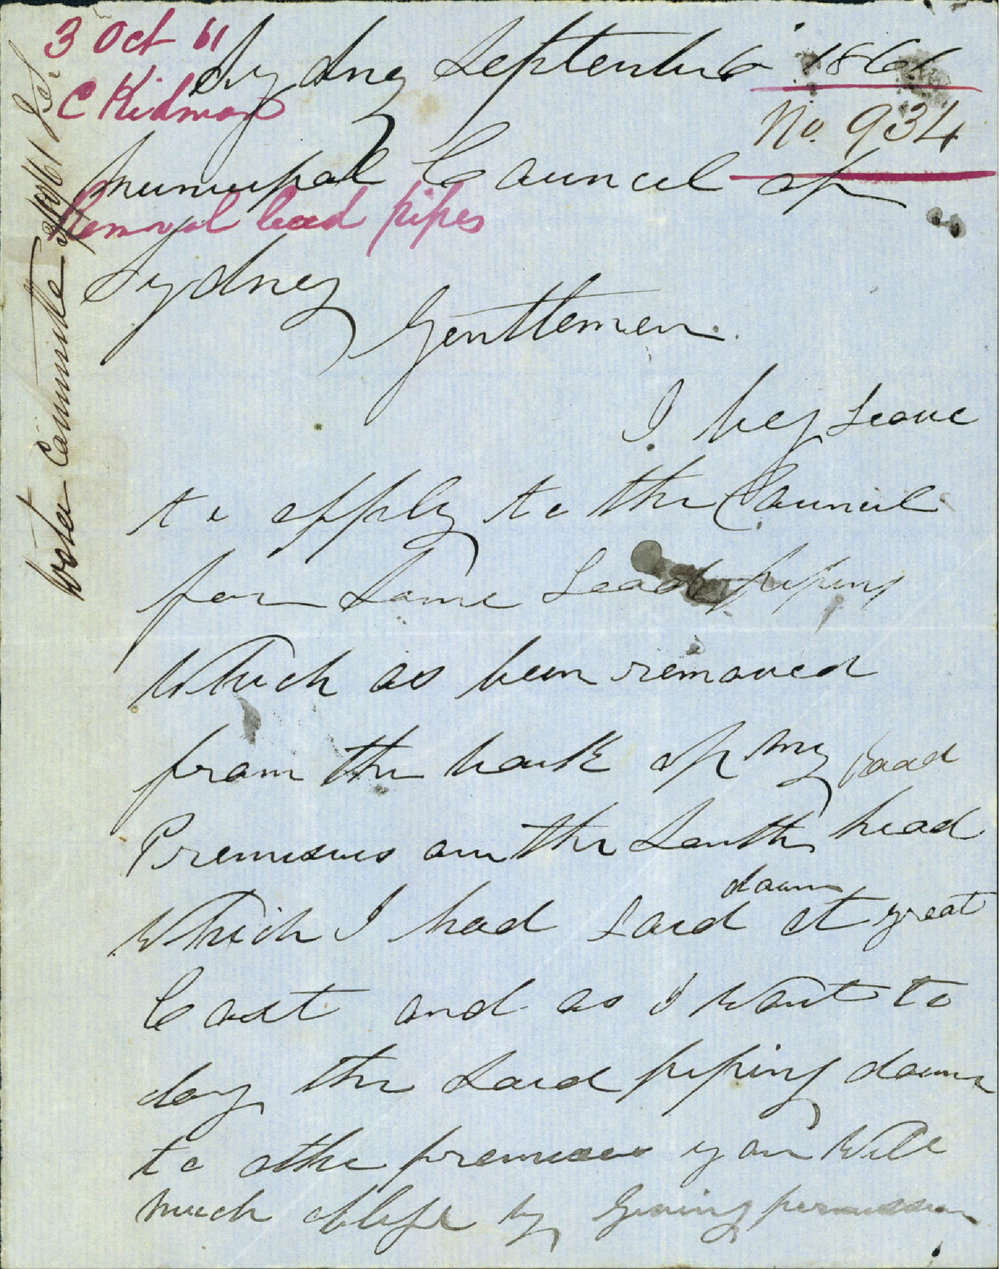 3 Oct 61
C Kidman
Removal lead pipes
Sydney September 1861
No. 934
Municipal Council of
Sydney
Gentlemen.
I beg Leave
to apply to the Council
for Some Lead piping
Which as been removed
from the back of My road
Premises on the South head
Which I had Laid down at great
Cost and as I Want to
lay the Said piping down
to othe premises you Will
Much oblige by Giving permission
Water Committee 3/10/61